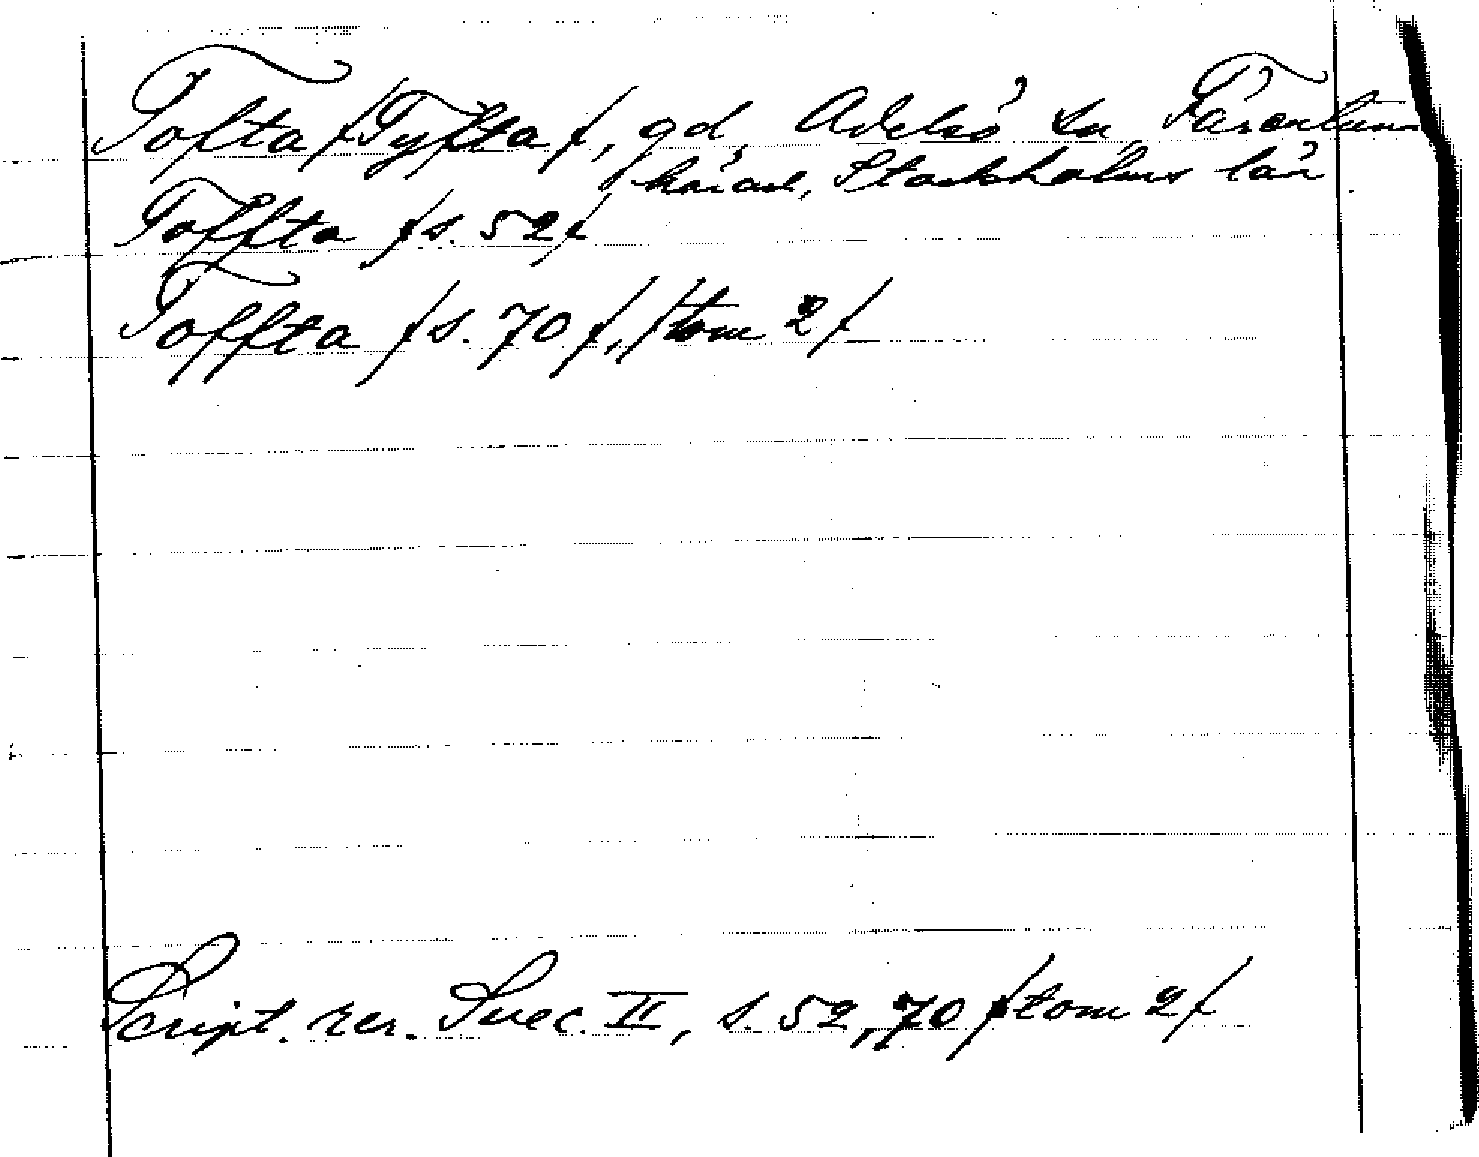 Tofta /Tyfta/, gd, Adelsö sn Färentuna
härad, Stockholms län
Toffta /s. 52/
Toffta /s. 70/, /tom 2/
Script. rer. Svec. II, s. 52, 70 /tom 2/